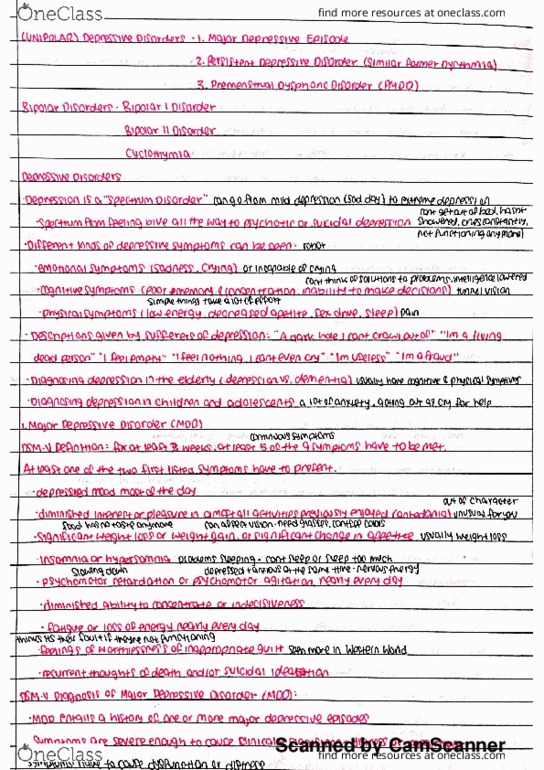 OneClass
find more resources at oneclass.com
(UNIPOLAR) Depressive Disorders - 1. Major Depressive Episode
2. Persistent Depressive Disorder (Similar former Dysthymia)
3. Premenstrual Dysphoric Disorder (PMDD)
Bipolar Disorders - Bipolar I Disorder
Bipolar II Disorder
Cyclothymia
Depressive Disorders
Depression is a "spectrum Disorder" range from mild depression (sad day) to extreme depression
cant get out of bed, hasnt
Spectrum from feeling blue all the way to psychotic or suicidal depression showered, cries constantly,
not functioning anymore)
Different kinds of depressive symptoms can be seen - robot
emotional symptoms (sadness, crying) or incapable of crying
cant think of solutions to problems, intelligence lowered
Cognitive symptoms (poor memory & concentration, inability to make decisions) tunnel vision
simple things take a lot of effort
Physical symptoms (low energy, decreased apetite, sex drive, sleep) pain
Descriptions given by sufferers of depression: "A dark hole I cant crawl out of" "Im a living
dead person" "I feel empty" "I feel nothing, I cant even cry" "Im useless" "Im a fraud"
Diagnosing depression in the elderly (depression vs. dementia) usually have cognitive & physical symptoms
Diagnosing depression in children and adolescents a lot of anxiety, acting out as cry for help
1. Major Depressive Disorder (MDD)
continuous symptoms
DSM-V Definition: for at least 3 weeks, at least 5 of the 9 symptoms have to be met.
At least one of the two first listed symptoms have to present.
depressed mood most of the day
out of character
diminished interest or pleasure in almost all activities previously enjoyed unusual for you
food has no taste anymore can affect vision - need glasses, colors
Significant weight loss or weight gain, or significant change in appetite usually weight loss
Insomnia or hypersomnia problems sleeping - cant sleep or sleep too much
slowing down depressed & anxious at the same time - nervous energy
psychomotor retardation or psychomotor agitation, nearly every day
diminished ability to concentrate or indecisiveness
fatigue or loss of energy nearly every day
thinks its their fault if theyre not functioning
feelings of worthlessness or inappropriate guilt seen more in Western World
recurrent thoughts of death and/or suicidal ideation
DSM-V Diagnosis of Major Depressive Disorder (MDD):
MDD entails a history of one or more major depressive episodes
Symptoms are severe enough to cause clinical
Scanned by CamScanner
OneClass
find more resources at oneclass.com
to cause dysfunction or distress